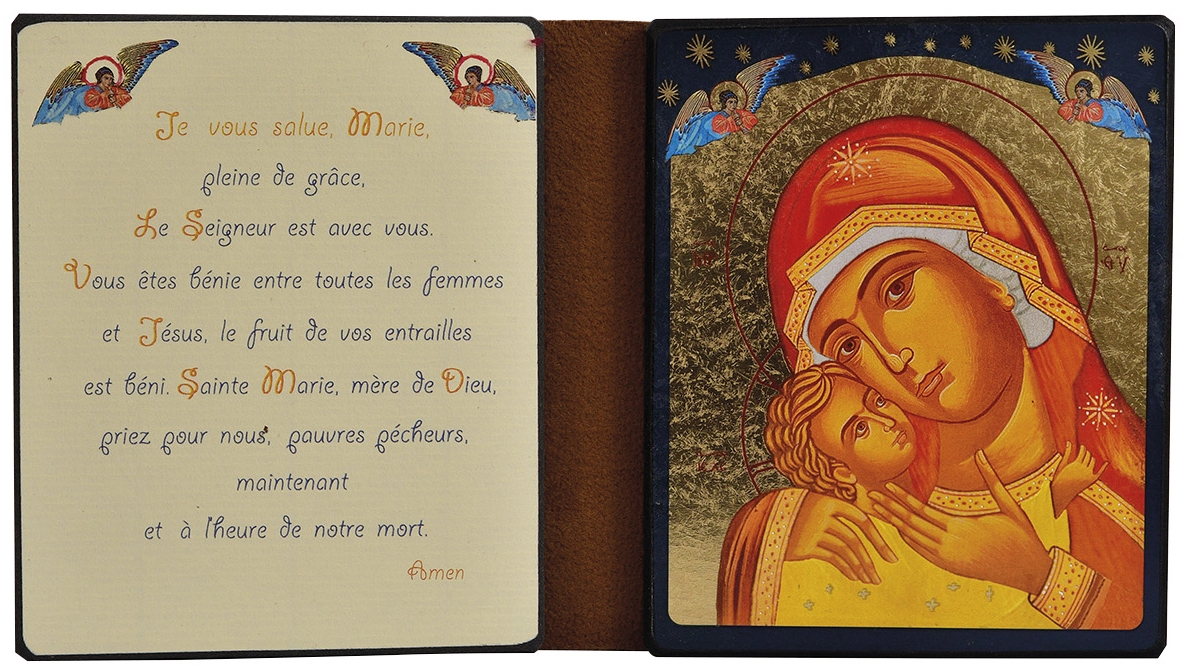 Je vous salue, Marie,
pleine de grâce,
Le Seigneur est avec vous.
Vous êtes bénie entre toutes les femmes
et Jésus, le fruit de vos entrailles
est béni. Sainte Marie, mère de Dieu,
priez pour nous, pauvres pécheurs,
maintenant
et à l'heure de notre mort.
Amen
ΘΥ